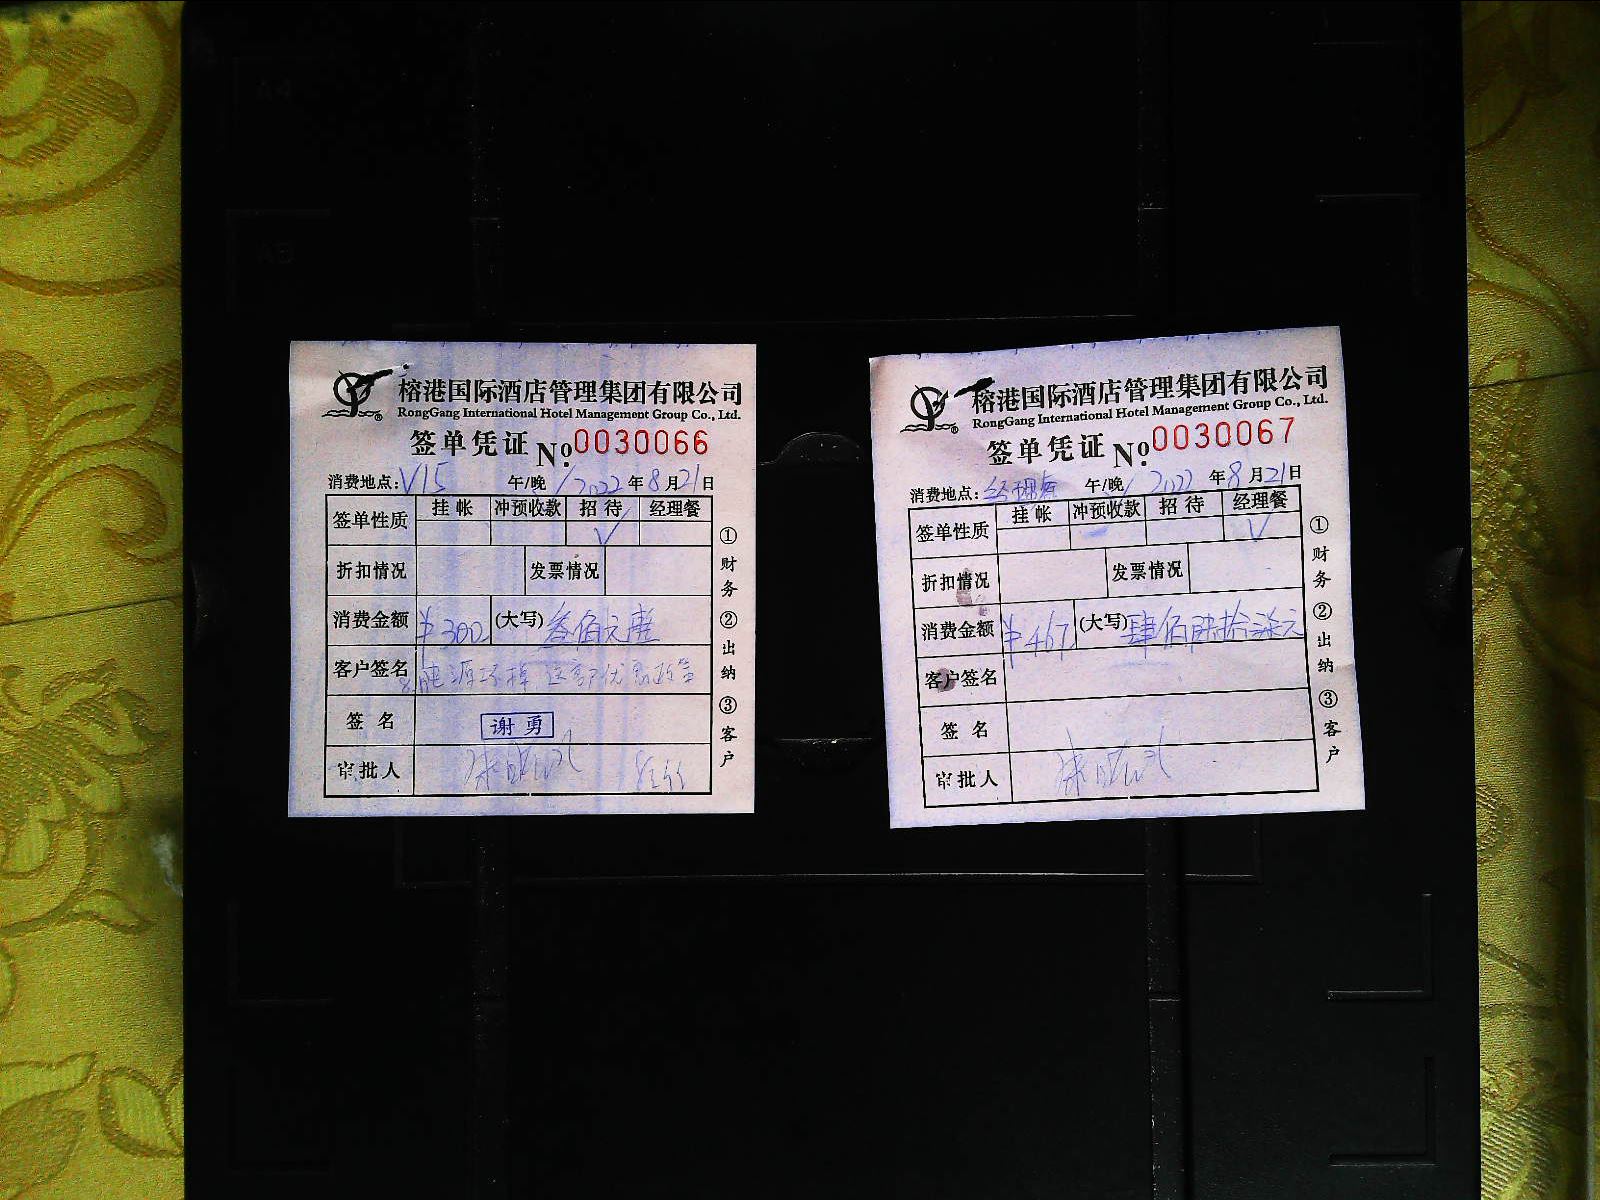 榕港国际酒店管理集团有限公司
RongGang International Hotel Management Group Co., Ltd.
签单凭证 №0030066
消费地点: V15 午/晚 2022 年 8 月 21 日
签单性质 挂帐 冲预收款 招待 经理餐
√
折扣情况 发票情况
消费金额 ¥300 (大写) 叁佰元整
客户签名 能源
签名 谢勇
审批人
①财务②出纳③客户
榕港国际酒店管理集团有限公司
RongGang International Hotel Management Group Co., Ltd.
签单凭证 №0030067
消费地点: 经理餐 午/晚 2022 年 8 月 21 日
签单性质 挂帐 冲预收款 招待 经理餐
√
折扣情况 发票情况
消费金额 ¥467 (大写) 肆佰陆拾柒元
客户签名
签名
审批人
①财务②出纳③客户